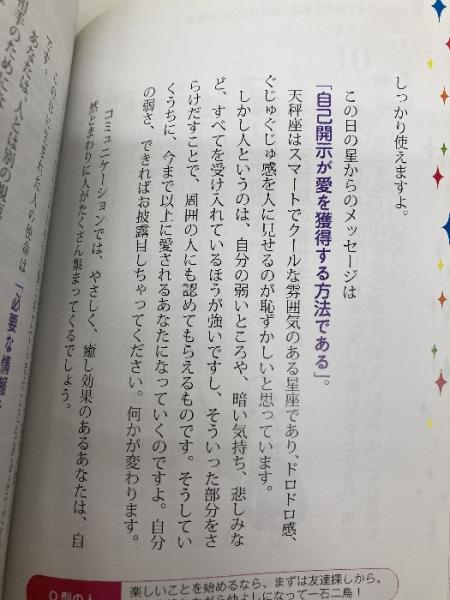 しっかり使えますよ。
この日の星からのメッセージは
「自己開示が愛を獲得する方法である」。
天秤座はスマートでクールな雰囲気のある星座であり、ドロドロ感、
ぐじゅぐじゅ感を人に見せるのが恥ずかしいと思っています。
しかし人というのは、自分の弱いところや、暗い気持ち、悲しみな
ど、すべてを受け入れているほうが強いですし、そういった部分をさ
らけだすことで、周囲の人にも認めてもらえるものです。そうしてい
くうちに、今まで以上に愛されるあなたになっていくのですよ。自分
の弱さ、できればお披露目しちゃってください。何かが変わります。
コミュニケーションでは、やさしく、癒し効果のあるあなたは、自
然とまわりに人がたくさん集まってくるでしょう。
「必要な情報を
です。
あなたは、人とは別の視点
相手のためにな
O型の人
楽しいことを始めるなら、まずは友達探しから。
仲よしになって一石二鳥!